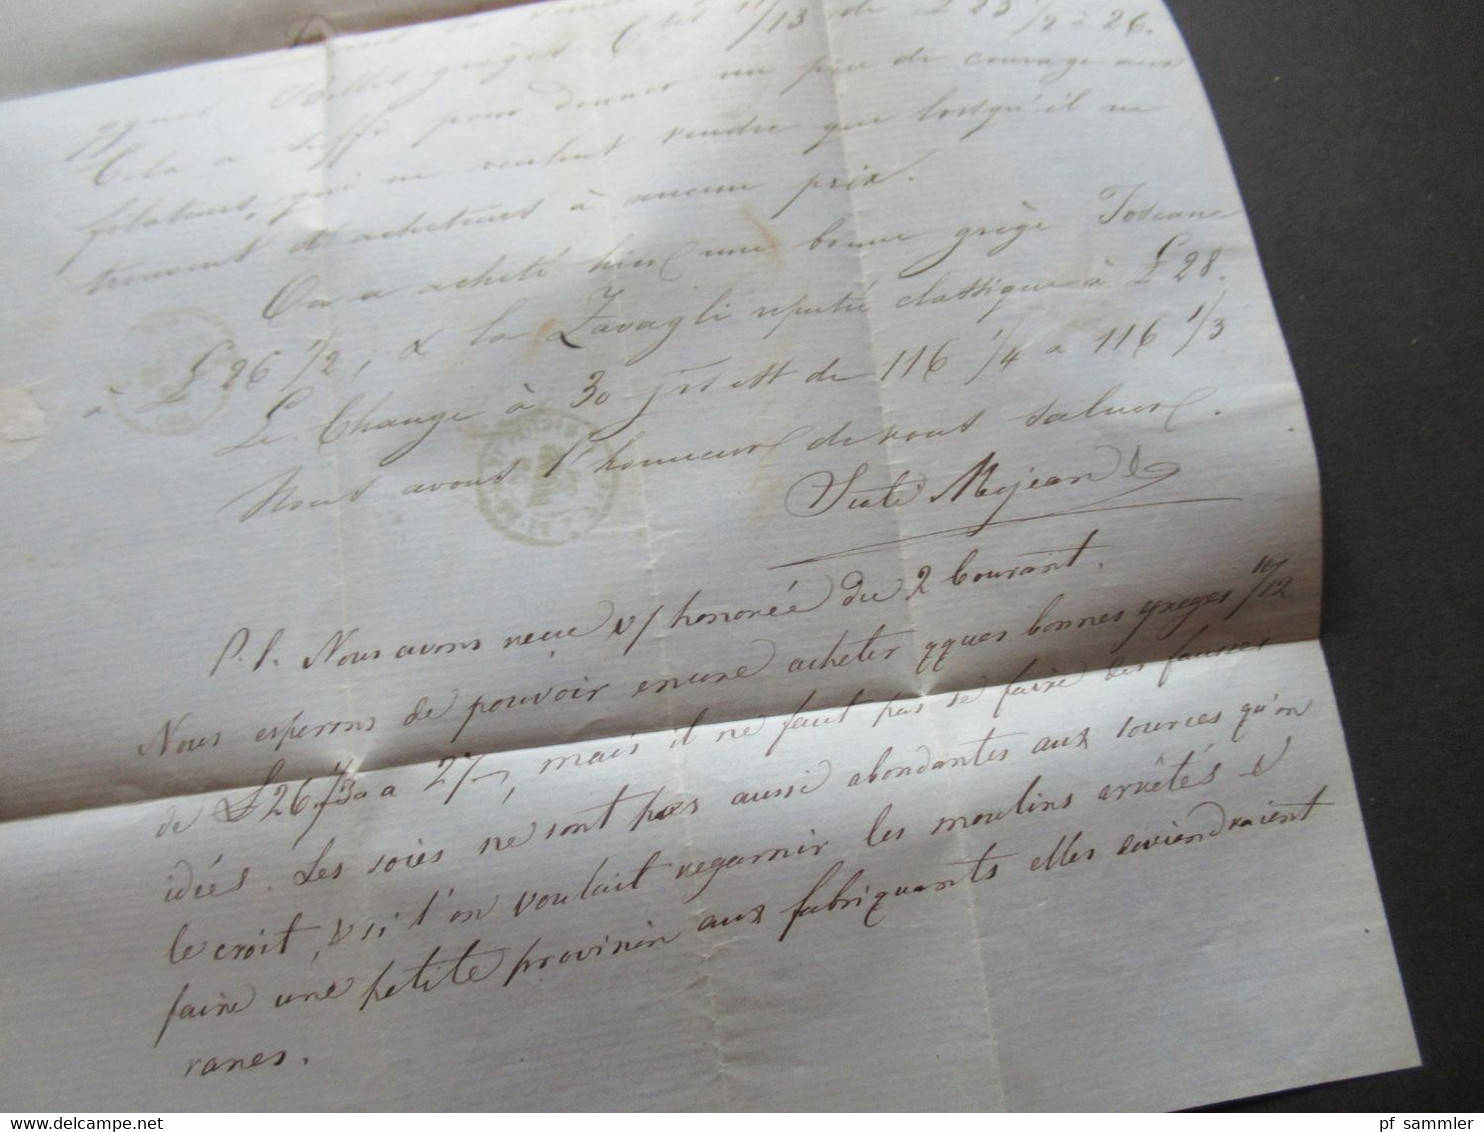 11/13 de £ 23 1/2 à 26.
qques belles grèges
Cela a suffi pour donner un peu de courage aux
filateurs, qui ne veulent vendre que lorsqu'il ne
trouvent d'acheteurs à aucun prix.
On a acheté hier une bonne grège Toscane
à £ 26 1/2, & la Zavagli reputée classique à £ 28.
Le Change à 30 jrs est de 116 1/4 a 116 1/3
Nous avons l'honneur de vous saluer.
Mejean
P.S. Nous avons reçu v/ honorée du 2 Courant.
Nous esperons de pouvoir encore acheter qques bonnes greges 10/12
de £ 26. a 27-, mais il ne faut pas se faire des fausses
idées. Les soies ne sont pas aussi abondantes aux sources qu'on
le croit, & si l'on voulait regarnir les moulins arrêtés &
faire une petite provision aux fabriquants elles deviendraient
rares.
pf sammler